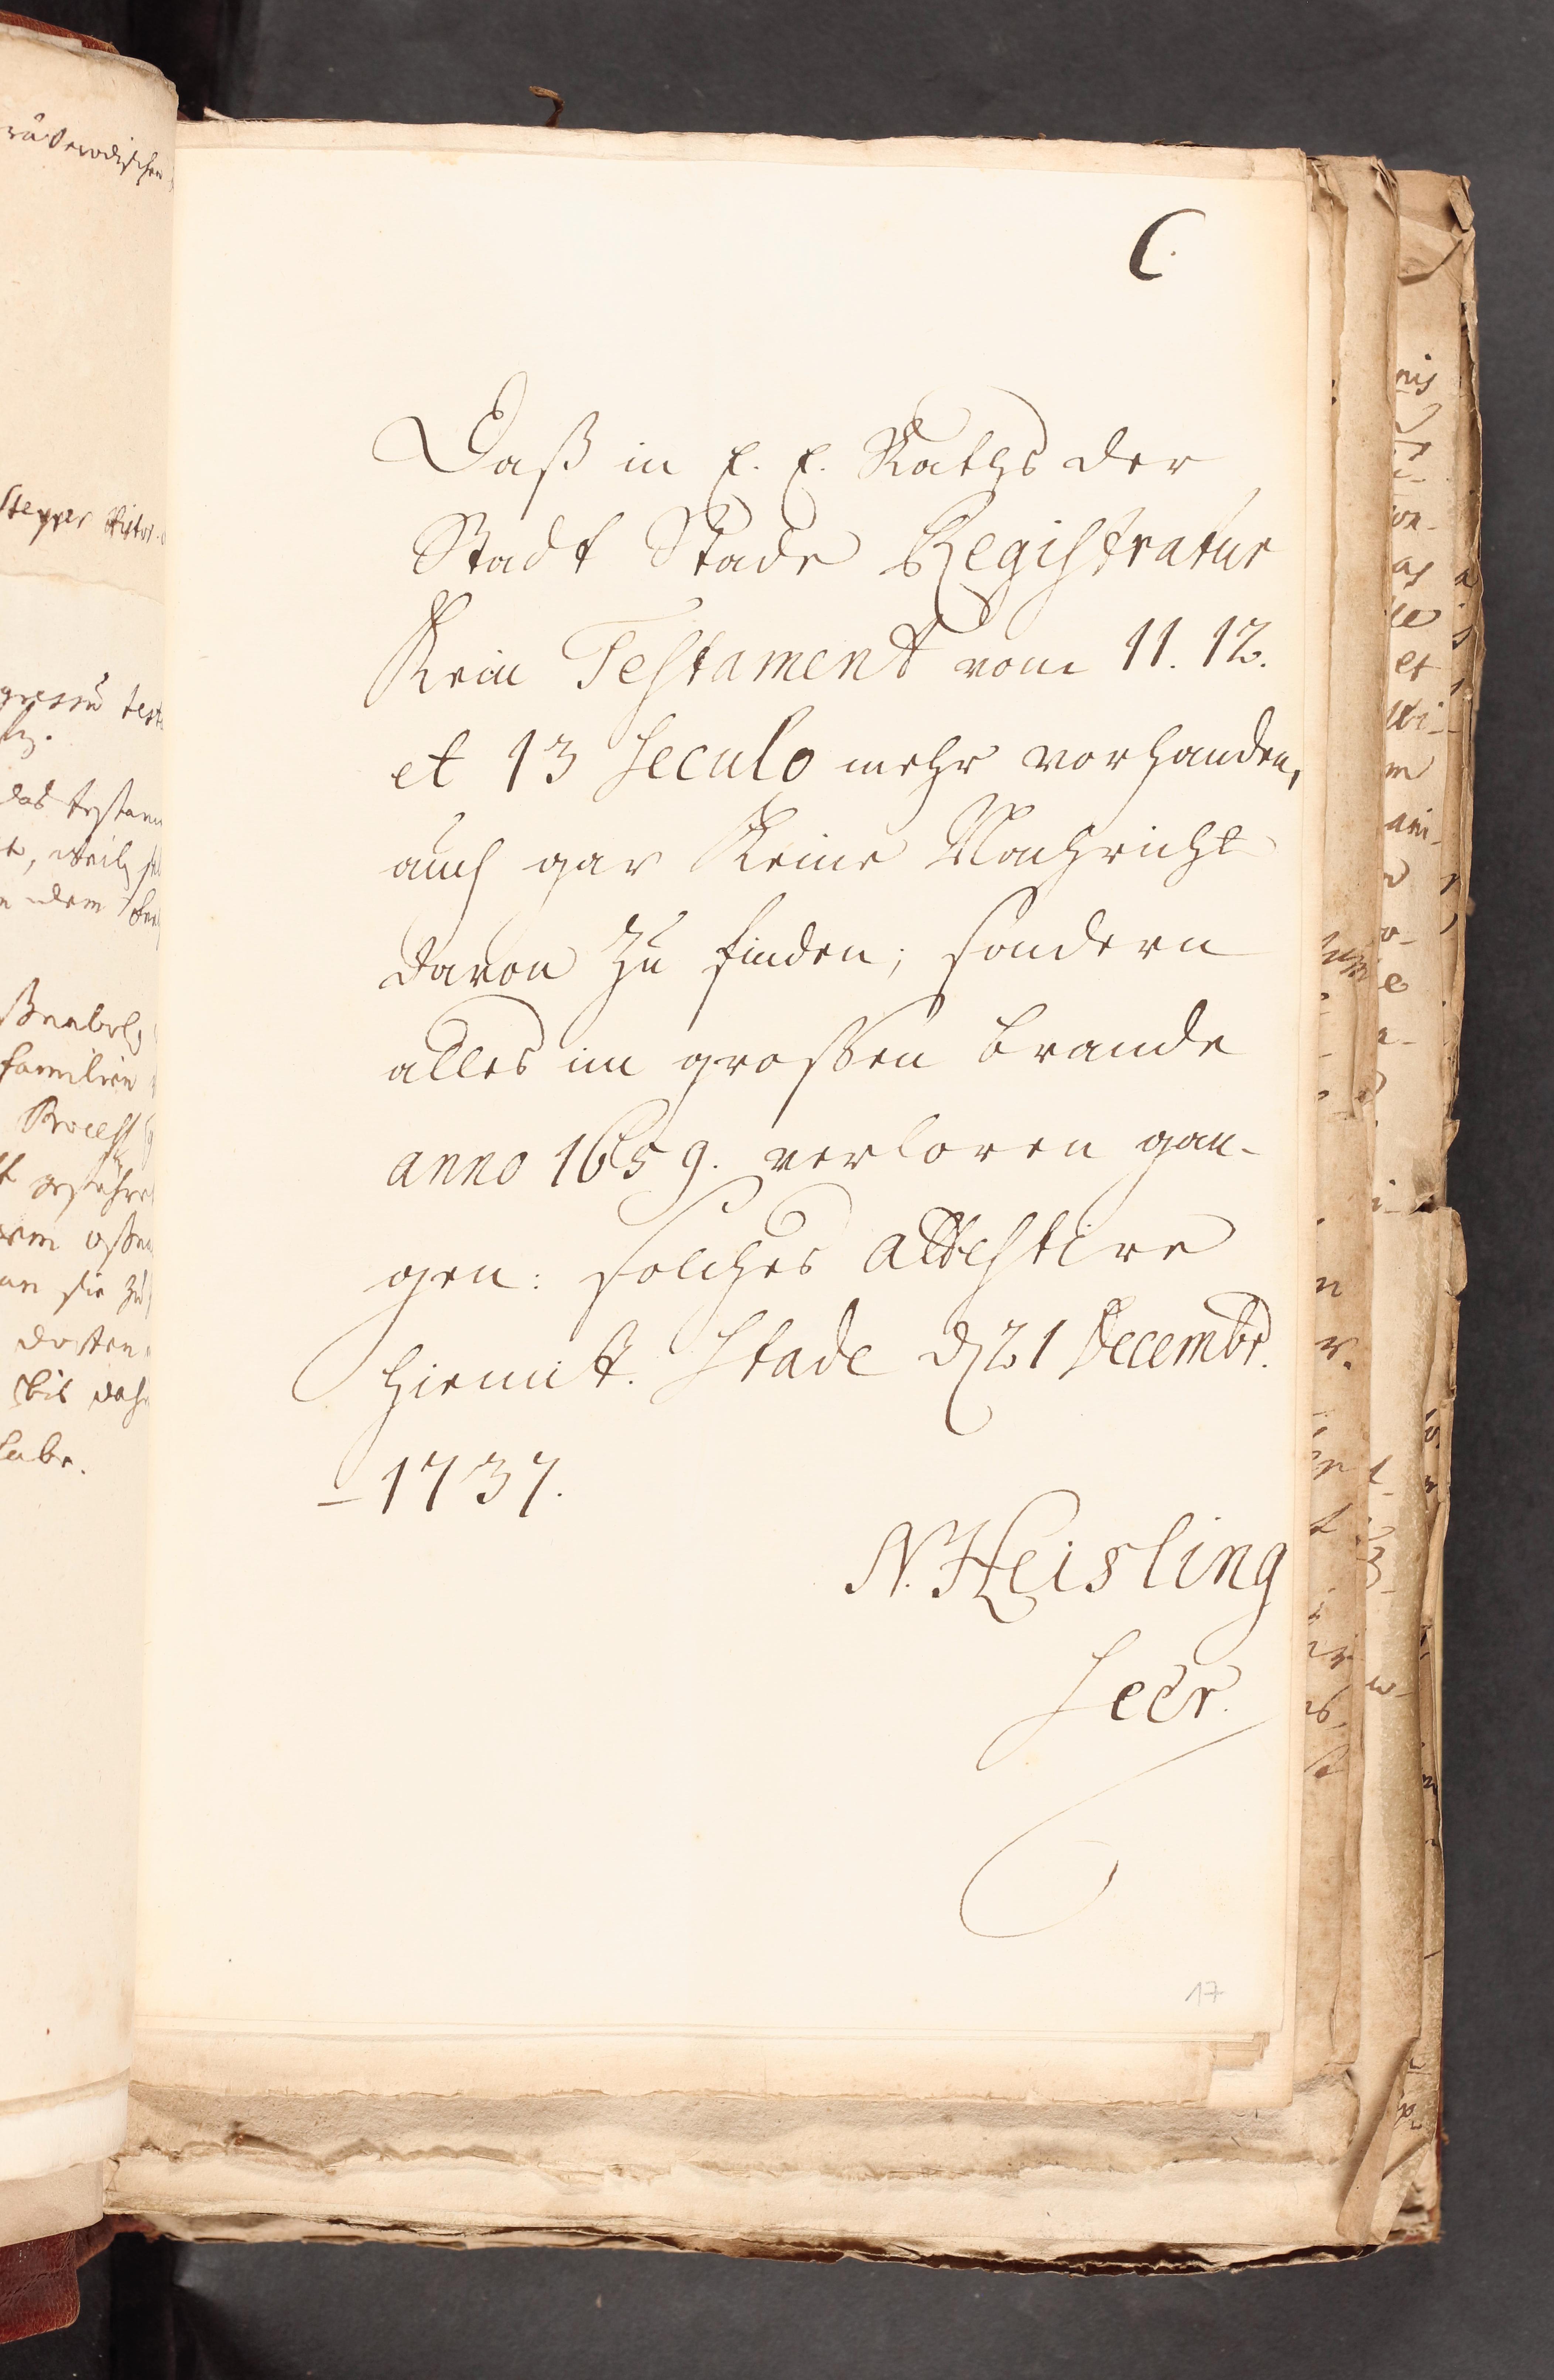 C.
Daß in E. E. Raths der
Stadt Stade Registratur
Kein Testament vom 11. 12.
et 13 Seculo mehr vorhanden,
auch gar Keine Nachricht
davon zu finden; sondern
alles im großen brande
anno 1659. verloren gan-
gen: solches attestire
hiemit. Stade d 21 Decembr.
1737.
N. Heisling
Secr.
17